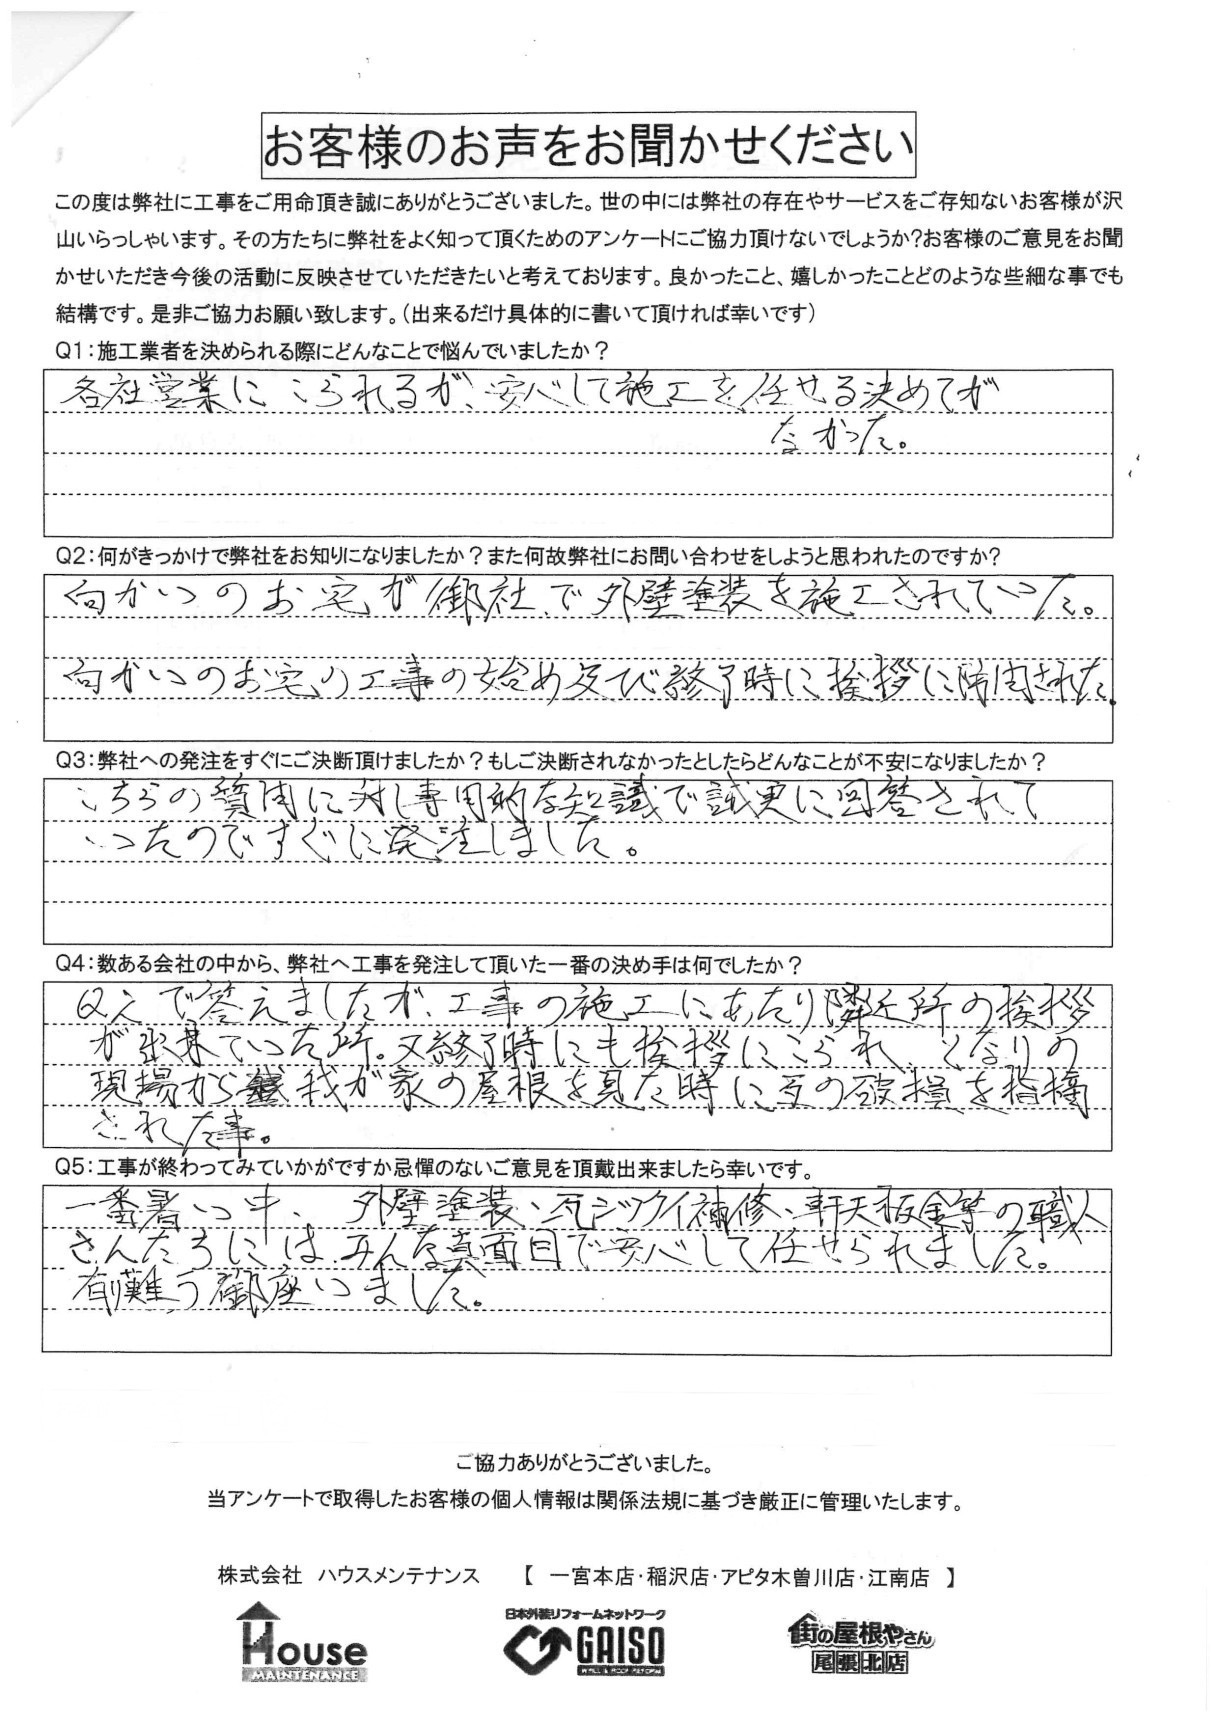 お客様のお声をお聞かせください
この度は弊社に工事をご用命頂き誠にありがとうございました。世の中には弊社の存在やサービスをご存知ないお客様が沢
山いらっしゃいます。その方たちに弊社をよく知って頂くためのアンケートにご協力頂けないでしょうか?お客様のご意見をお聞
かせいただき今後の活動に反映させていただきたいと考えております。良かったこと、嬉しかったことどのような些細な事でも
結構です。是非ご協力お願い致します。(出来るだけ具体的に書いて頂ければ幸いです)
Q1:施工業者を決められる際にどんなことで悩んでいましたか?
各社営業にこられるが、安心して施工を任せる決めてが
なかった。
Q2:何がきっかけで弊社をお知りになりましたか?また何故弊社にお問い合わせをしようと思われたのですか?
向かいのお宅が御社で外壁塗装を施工されていた。
向かいのお宅の工事の始め及び終了時に挨拶に訪問された。
Q3:弊社への発注をすぐにご決断頂けましたか?もしご決断されなかったとしたらどんなことが不安になりましたか?
こちらの質問に対し専用的な知識で誠実に回答されて
いったのですぐに発注しました。
Q4:数ある会社の中から、弊社へ工事を発注して頂いた一番の決め手は何でしたか?
Q2で答えましたが、工事の施工にあたり隣近所の挨拶
が出来ていた所。又終了時にも挨拶にこられ、となりの
現場から我が家の屋根を見た時に瓦の破損を指摘
された事。
Q5:工事が終わってみていかがですか忌憚のないご意見を頂戴出来ましたら幸いです。
一番暑い中、外壁塗装、瓦シックイ補修、軒天板金等の職人
さんたちにはみんな真面目で安心して任せられました。
有難う御座いました。
ご協力ありがとうございました。
当アンケートで取得したお客様の個人情報は関係法規に基づき厳正に管理いたします。
株式会社 ハウスメンテナンス 【 一宮本店・稲沢店・アピタ木曽川店・江南店 】
House
MAINTENANCE
日本外装リフォームネットワーク
GAISO
WALL & ROOF REFORM
街の屋根やさん
尾張北店